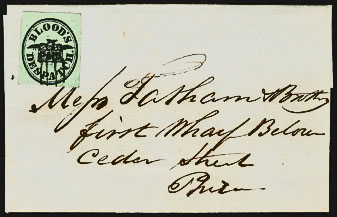 BLOOD'S
DESPATCH
Mess Tatham &
first Wharf Below
Ceder Street
Phila